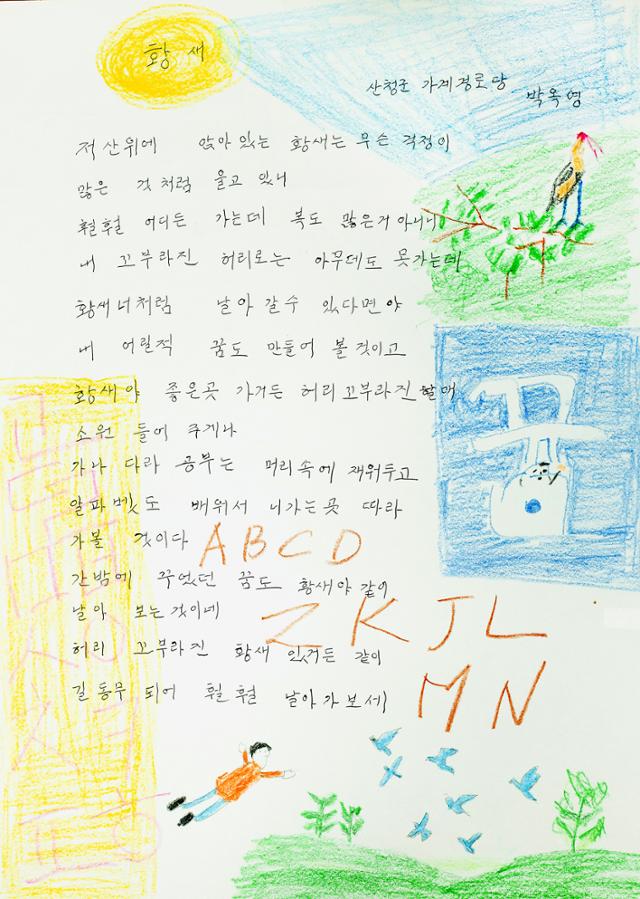 황새
산청군 가계경로당
박옥영
저 산위에 앉아 있는 황새는 무슨 걱정이
많은 것 처럼 울고 있니
훨훨 어디든 가는데 복도 많은거 아니니
내 꼬부라진 허리로는 아무데도 못가는데
황새 너처럼 날아 갈수 있다면야
내 어릴적 꿈도 만들어 볼 것이고
황새야 좋은곳 가거든 허리 꼬부라진 할매
소원 들어 주게나
가나 다라 공부는 머리속에 재워두고
알파벳도 배워서 니가는곳 따라
가볼 것이다
A B C D
간밤에 꾸었던 꿈도 황새야 같이
날아 보는것이네
Z K J L
허리 꼬부라진 황새 있거든 같이
길동무 되어 훨훨 날아가 보세
M N